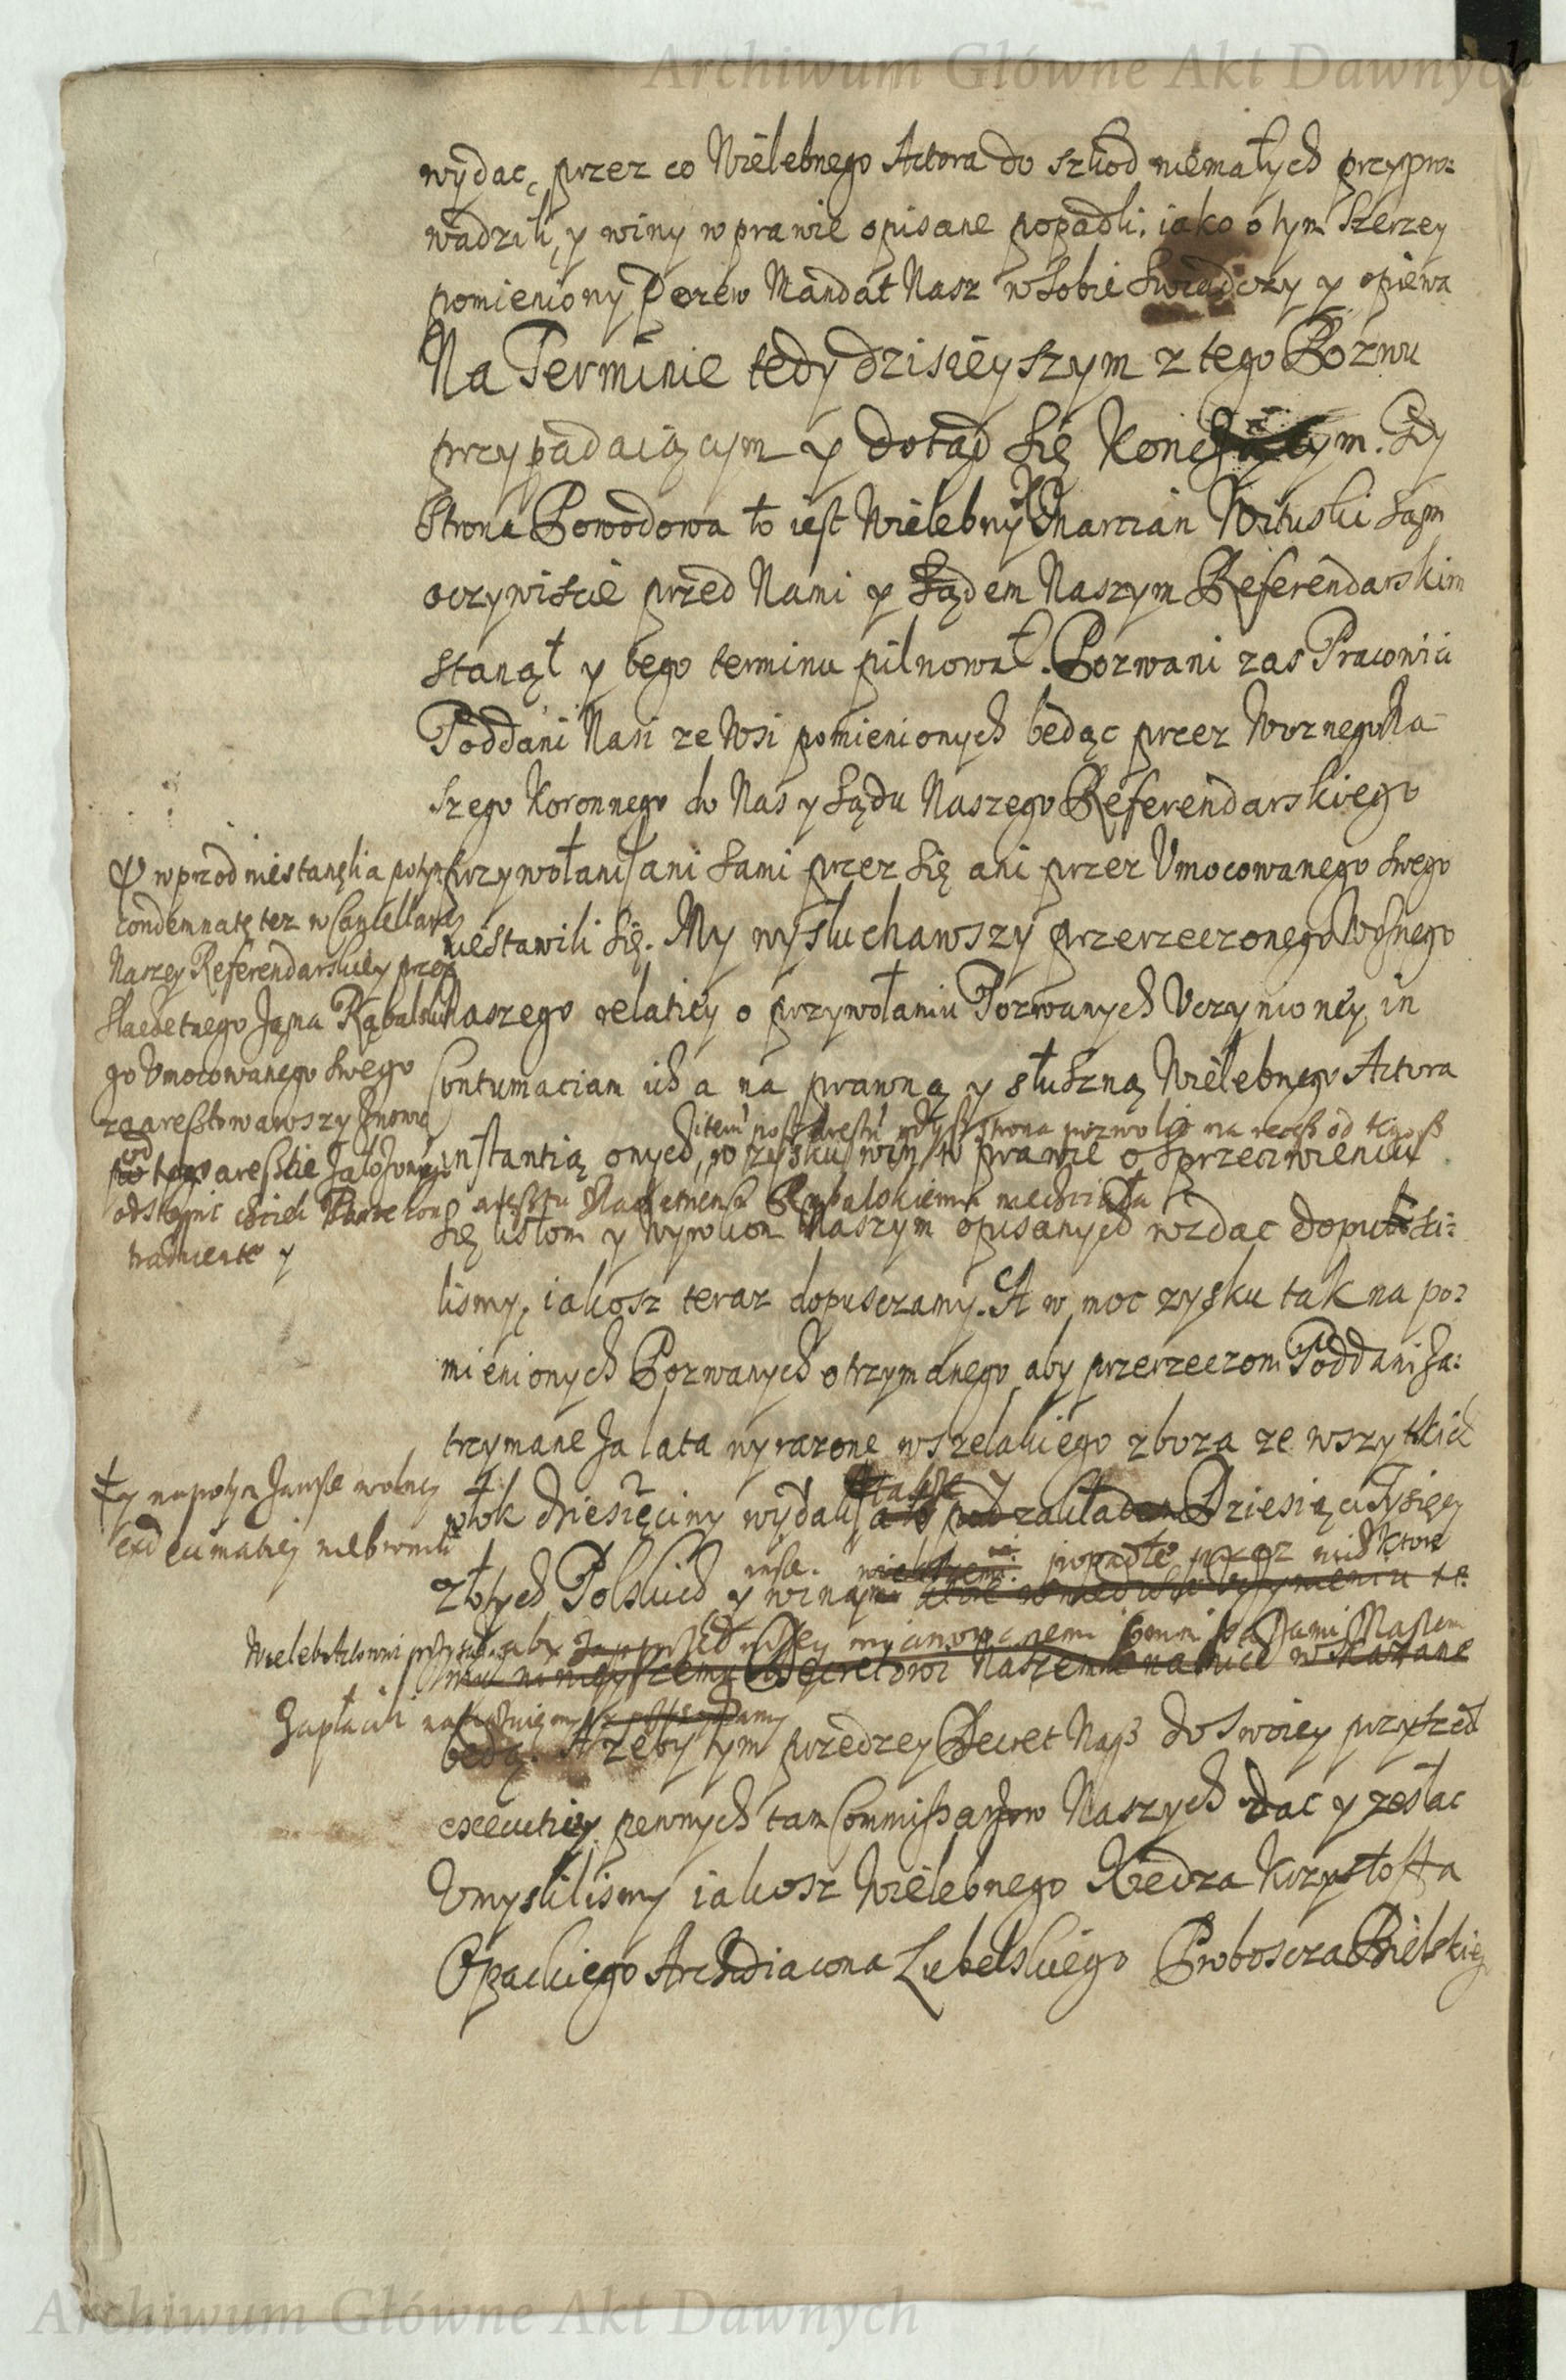 Archiwum Główne Akt Dawnych
wydac, przez co Wielebnego Actora do szkod niemałych przypro:
wadzili, y winy w prawie opisane popadli, iako o tym szerzey
pomieniony Pozew Mandat Nasz w sobie swiadczy y opiewa
Na Terminie tedy dzisieyszym z tego Pozwu
przypadaiącym y dotąd się konczącym. Gdy
Strona Powodowa to iest Wielebny X Marcian Wituski sąm
oczywiscie przed Nami y Sądem Naszym Referendarskim
stanął y tego terminu pilnował. Pozwani zas Pracowici
Poddani Nasi ze Wsi pomienionych bedąc przez Woznego Na-
szego Koronnego do Nas y Sądu Naszego Referendarskiego
przywołani ani sami przez się ani przez Vmocowanego swego
niestawili się. My wysluchawszy przerzeczonego Woznego
Naszego relatiey o przywołaniu Pozwanych Vczynioney, in
Contumaciam ich a na prawną y słuszną Wielebnego Actora
instantią onych, w zysku win w prawie o sprzeciwieniu
się listom y wyrokom Naszym opisanych wzdac dopusci:
lismy, iakosz teraz dopusczamy. A w moc zysku tak na po:
mienionych Pozwanych otrzymanego, aby przerzeczoni Poddani za:
trzymane za lata wyrazone wszelakiego zboza ze wszytkich
włok dziesięciny wydali a to pod zakładem Dziesiąciu Tysięcy
złotych Polskich y winami
Decretowi Naszemu na nich wskazane
bedą. A zeby tym prędzey Decret Nasz do swoiey przyszedł
executiey, pewnych tam Commissarzow Naszych dac y zesłac
Vmyslilismy iakosz Wielebnego Xiedza Krzysztoffa
Opackiego Archidiacona Lubelskiego Proboscza Bielskieg
y wprzod niestanęli a potym
condemnatę tez w Cancellariey
Naszey Referendarskiey przez
Slachetnego Jana Rąbalskie
go Vmocowanego swego
zaarestowawszy znowu
od tego aresztu założonego
odstąpic chcieli
y
y na potym zawsze wolney
ex decimatiey nie bronili
Zapłacili
Archiwum Główne Akt Dawnych